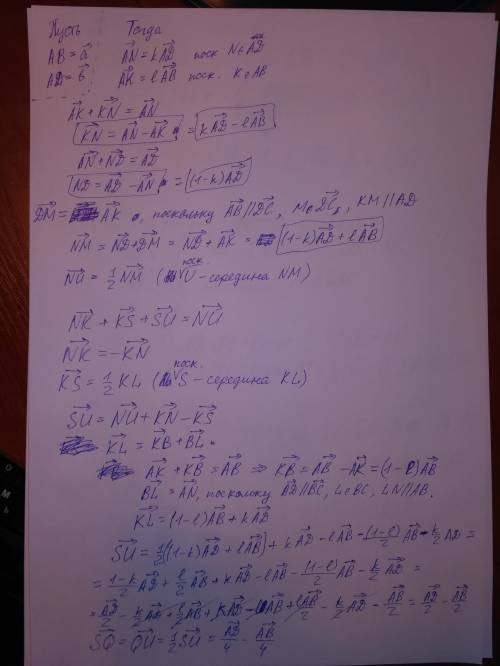 Пусть Тогда
AB = a⃗ AN⃗ = kAD⃗ поск N∈AD⃗
AD = b⃗ AK⃗ = lAB⃗ поск. K∈AB
AK⃗ + KN⃗ = AN⃗
KN⃗ = AN⃗ - AK⃗ = kAD⃗ - lAB⃗
AN⃗ + ND⃗ = AD⃗
ND⃗ = AD⃗ - AN⃗ = (1-k)AD⃗
DM⃗ = AK⃗, поскольку AB⃗ || DC⃗, M∈DC⃗, KM || AD
NM⃗ = ND⃗ + DM⃗ = ND⃗ + AK⃗ = (1-k)AD⃗ + lAB⃗
NU⃗ = 1/2 NM⃗ (поск. U - середина NM)
NK⃗ + KS⃗ + SU⃗ = NU⃗
NK⃗ = -KN⃗
KS⃗ = 1/2 KL (поск. S - середина KL)
SU⃗ = NU⃗ + KN⃗ - KS⃗
KL⃗ = KB⃗ + BL⃗
AK⃗ + KB⃗ = AB⃗ ⇒ KB⃗ = AB⃗ - AK⃗ = (1-l)AB⃗
BL⃗ = AN⃗, поскольку AD⃗ || BC⃗, L∈BC, LN || AB.
KL⃗ = (1-l)AB⃗ + kAD⃗
SU⃗ = 1/2((1-k)AD⃗ + lAB⃗) + kAD⃗ - lAB⃗ - (1-l)/2 AB⃗ - k/2 AD⃗ =
= (1-k)/2 AD⃗ + l/2 AB⃗ + kAD⃗ - lAB⃗ - (1-l)/2 AB⃗ - k/2 AD⃗ =
= AD⃗/2 - k/2 AD⃗ + l/2 AB⃗ + kAD⃗ - lAB⃗ + lAB⃗/2 - k/2 AD⃗ - AB⃗/2 = AD⃗/2 - AB⃗/2
SQ⃗ = QU⃗ = 1/2 SU⃗ = AD⃗/4 - AB⃗/4